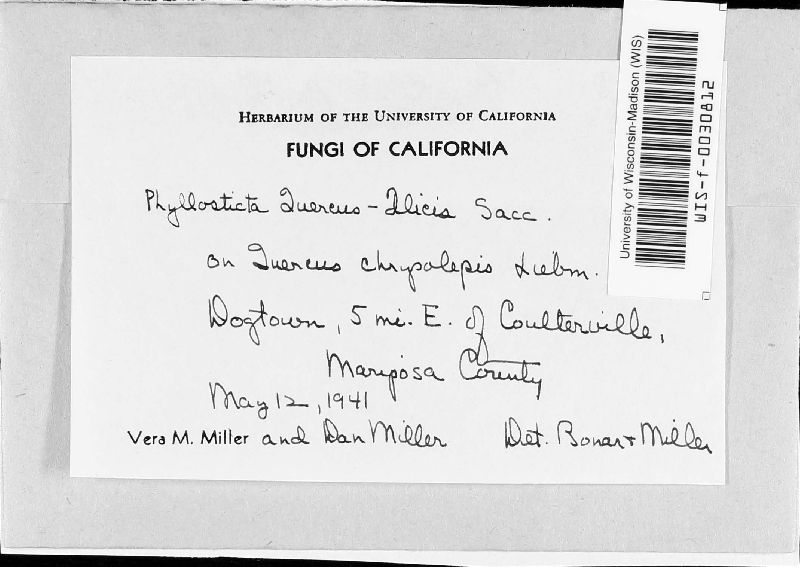 HERBARIUM OF THE UNIVERSITY OF CALIFORNIA
FUNGI OF CALIFORNIA
Phyllosticta Quercus-Ilicis Sacc.
on Quercus chrysolepis Liebm.
Dogtown, 5 mi. E. of Coulterville,
Mariposa County
May 12, 1941
Vera M. Miller and Dan Miller Det. Bonar + Miller
University of Wisconsin-Madison (WIS)
WIS-f-0030812